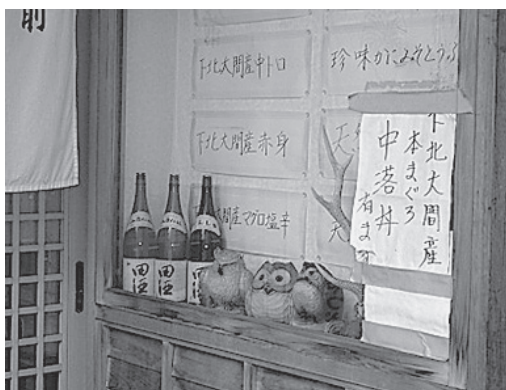 前
下北大間産中トロ
珍味かにみそとうふ
下北大間産赤身
天
大間産マグロ塩辛
天
下北大間産
本まぐろ
中落丼
有ます
田酒
田酒
田酒